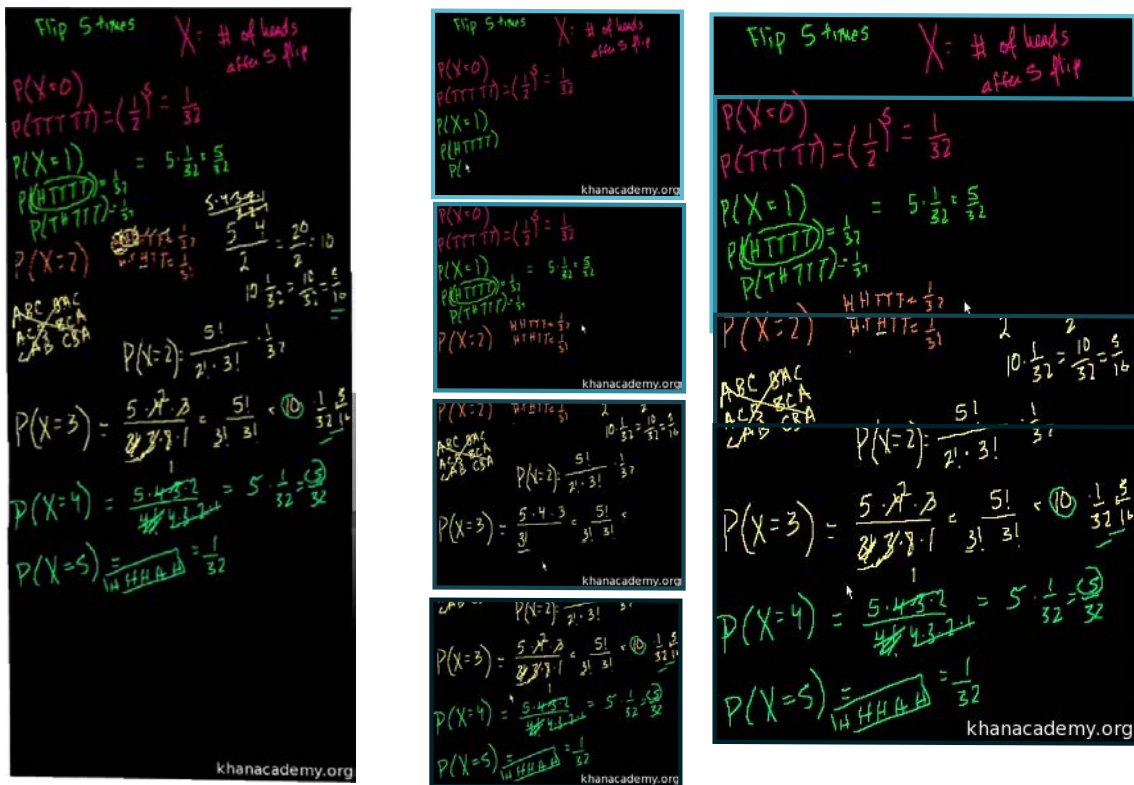 Flip 5 times X = # of heads
after 5 flip
P(X=0)
P(TTTTT) = (1/2)^5 = 1/32
P(X=1) = 5·1/32 = 5/32
P(HTTTT) = 1/32
P(THTTT) = 1/32
5·4·3·2·1
P(X=2) 5 4 / 2 = 20/2 = 10
10·1/32 = 10/32 = 5/16
ABC BAC
ACB BCA
CAB CBA
P(X=2) = 5!/2!·3! · 1/32
P(X=3) = 5·4·3 = 5!/3! = 10 · 1/32 5/16
P(X=4) = 5·4·3·2 / 4·3·2·1 = 5·1/32 = 5/32
P(X=5) = HHHHH = 1/32
khanacademy.org
Flip 5 times X = # of heads
after 5 flip
P(X=0)
P(TTTTT) = (1/2)^5 = 1/32
P(X=1)
P(HTTTT)
P(
khanacademy.org
P(X=0)
P(TTTTT) = (1/2)^5 = 1/32
P(X=1) = 5·1/32 = 5/32
P(HTTTT) = 1/32
P(THTTT) = 1/32
P(X=2) HHTTT = 1/32
HTHTT = 1/32
khanacademy.org
P(X=2) HTHTT = 1/32
10·1/32 = 10/32 = 5/16
ABC BAC
ACB BCA
CAB CBA
P(X=2) = 5!/2!·3! · 1/32
P(X=3) = 5·4·3/3! = 5!/3! 3! =
khanacademy.org
P(X=2) = 2!·3!
P(X=3) = 5·4·3 = 5!/3! 3! = 10 · 1/32 5/16
P(X=4) = 5·4·3·2 / 4·3·2·1 = 5·1/32 = 5/32
P(X=5) = HHHHH = 1/32
khanacademy.org
Flip 5 times X = # of heads
after 5 flip
P(X=0)
P(TTTTT) = (1/2)^5 = 1/32
P(X=1) = 5·1/32 = 5/32
P(HTTTT) = 1/32
P(THTTT) = 1/32
HHTTT = 1/32
P(X=2) HTHTT = 1/32
10·1/32 = 10/32 = 5/16
ABC BAC
ACB BCA
CAB CBA
P(X=2) = 5!/2!·3! · 1/32
P(X=3) = 5·4·3 = 5!/3! 3! = 10 · 1/32 5/16
P(X=4) = 5·4·3·2 / 4·3·2·1 = 5·1/32 = 5/32
P(X=5) = HHHHH = 1/32
khanacademy.org